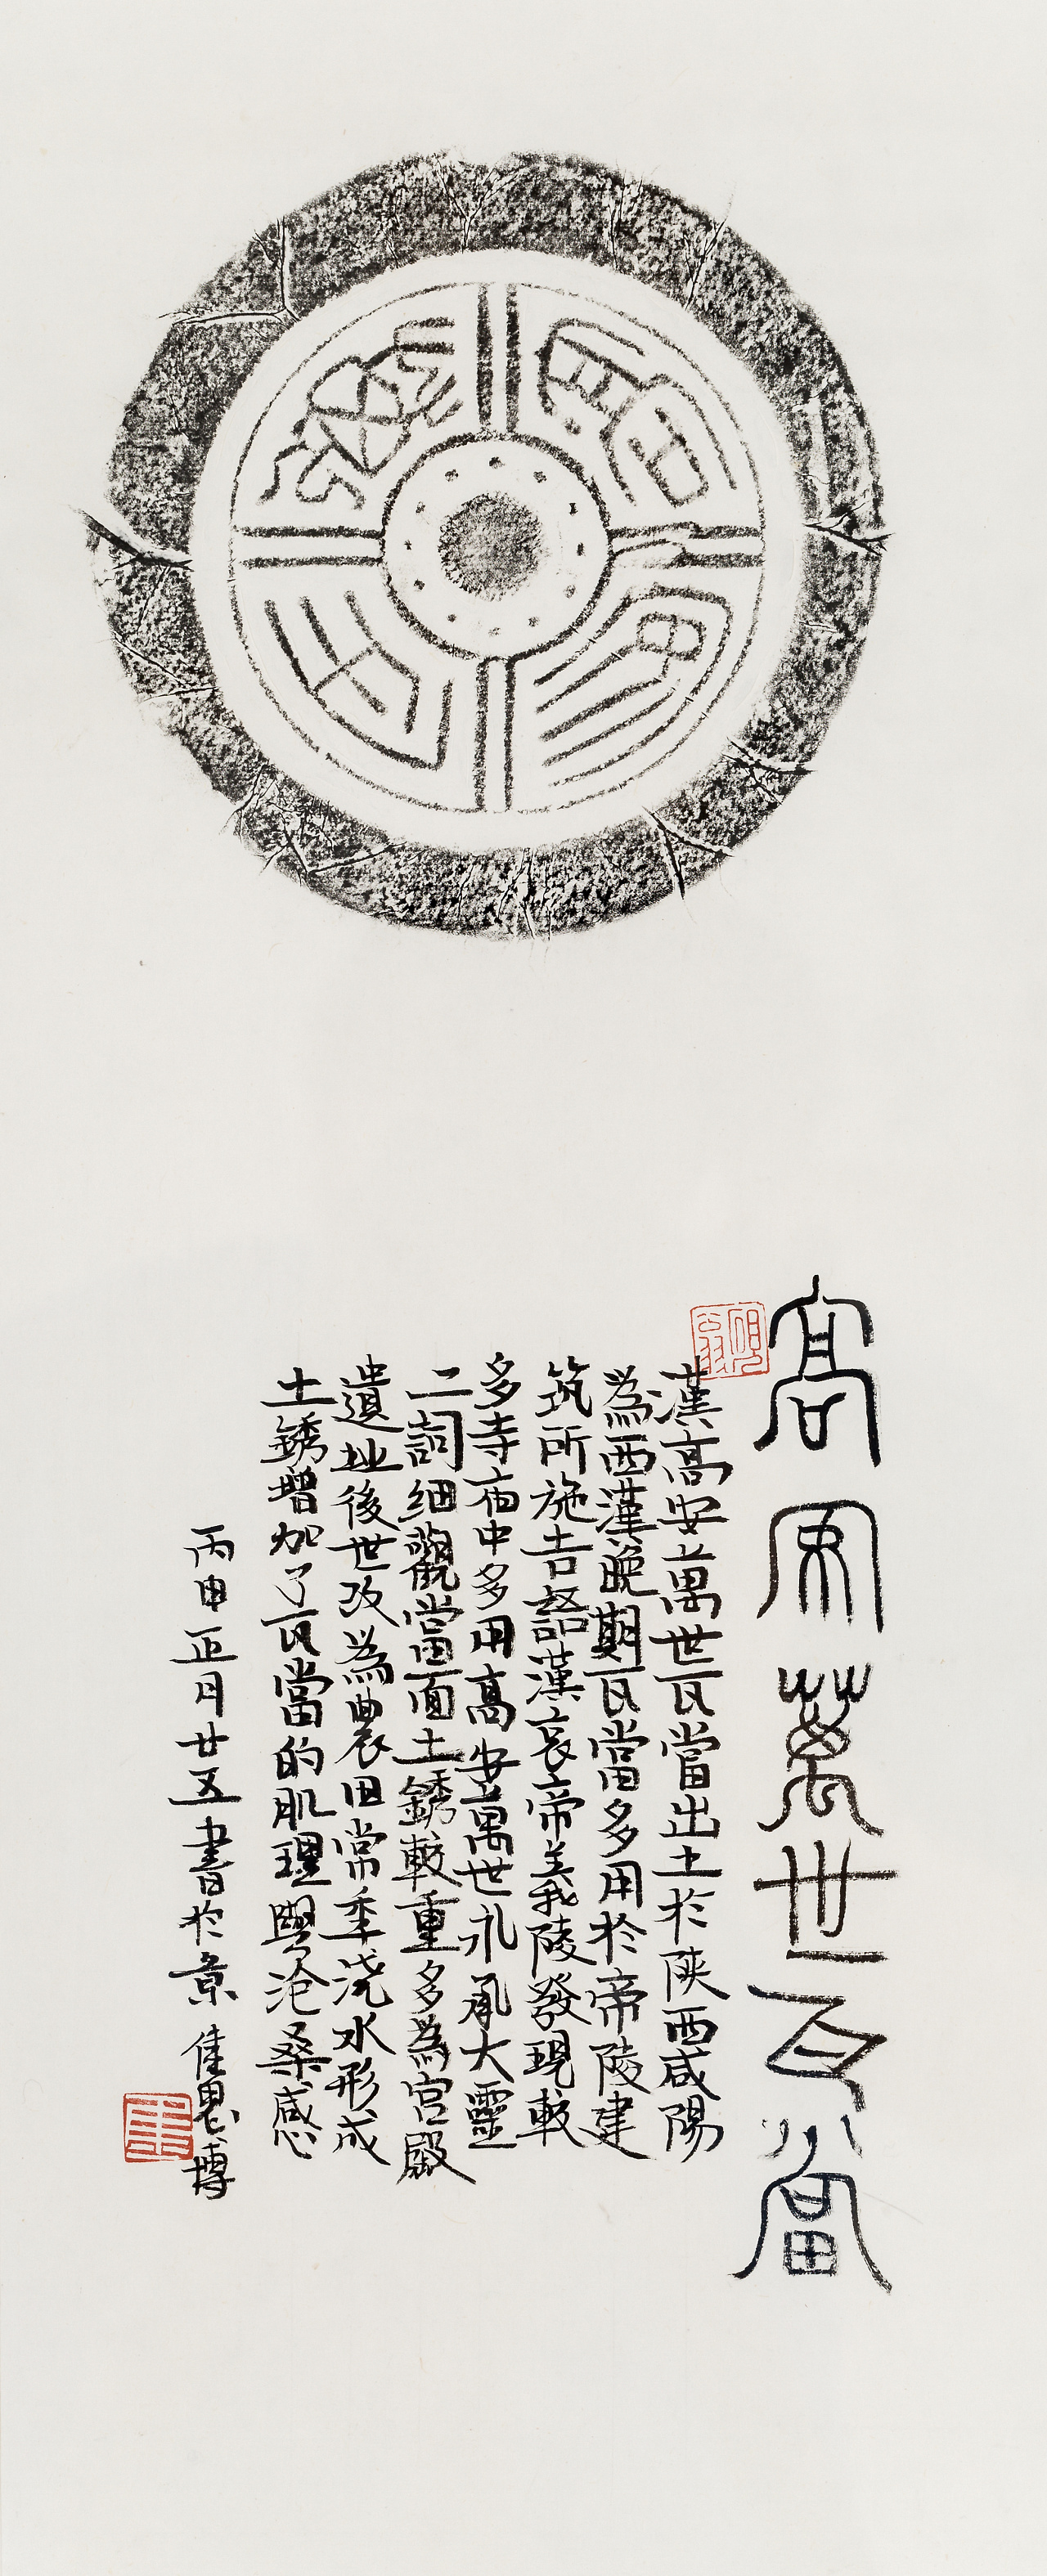 高安萬世瓦當
漢高安萬世瓦當出土於陝西咸陽
為西漢晚期瓦當多用於帝陵建
筑所施吉語漢哀帝義陵發現較
多寺庙中多用高安萬世永承大靈
二詞细觀當面土銹較重多為宫殿
遺址後世改為農田常年浇水形成
土銹增加了瓦當的肌理與沧桑感
丙申正月廿五書於京 崔恩博
高安萬世